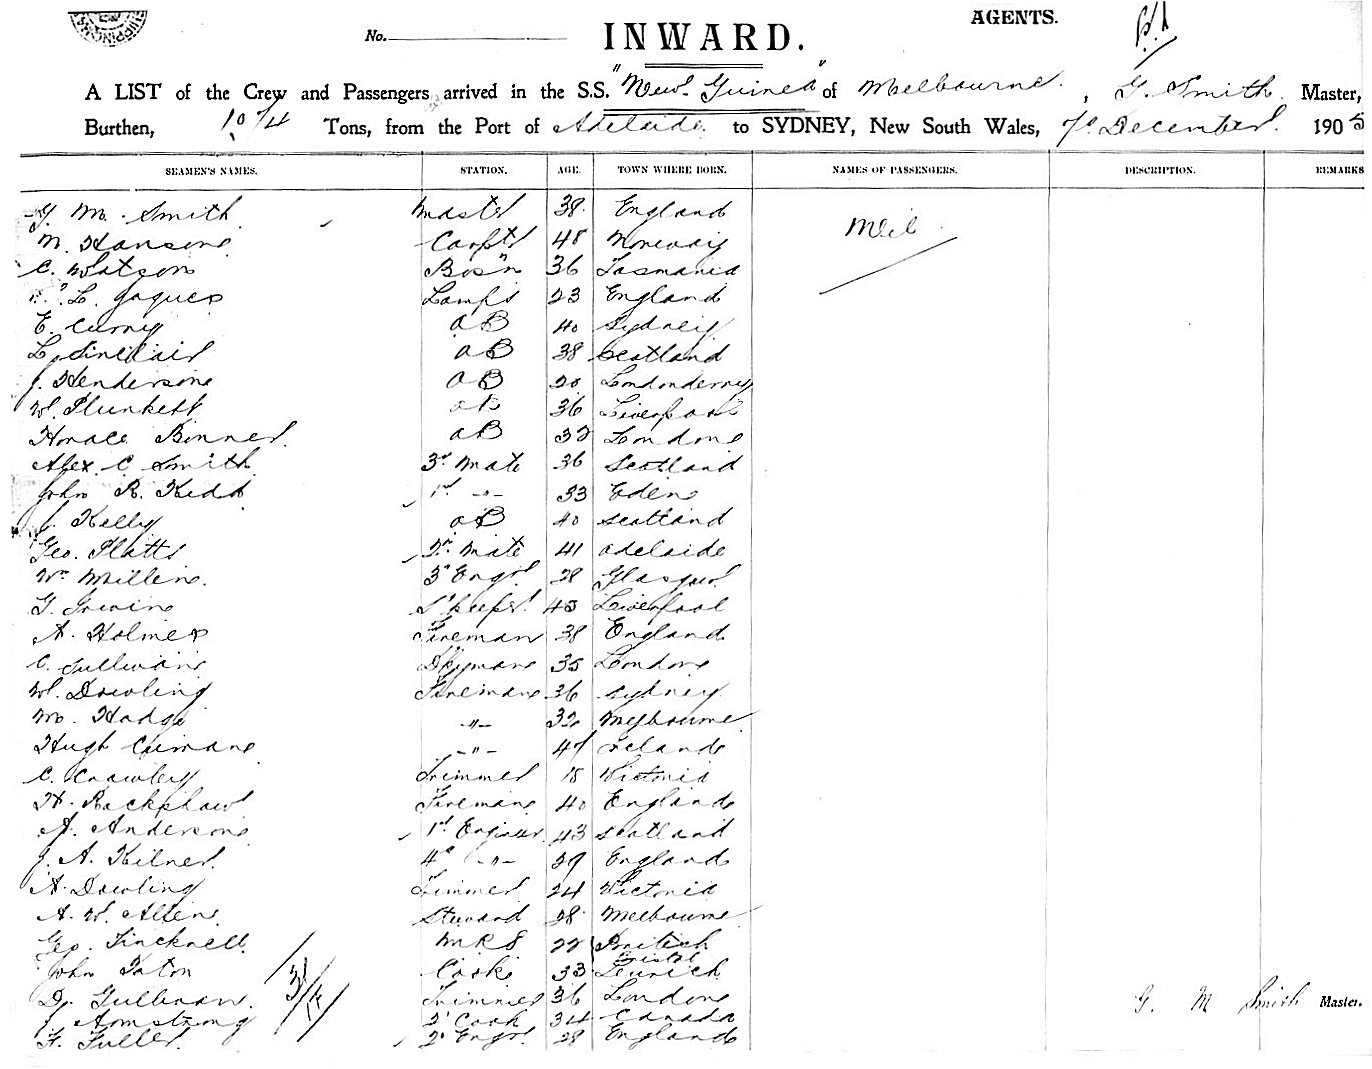 SHIPPING
No. INWARD. AGENTS.
A LIST of the Crew and Passengers arrived in the S.S. "New Guinea" of Melbourne, G. Smith Master,
Burthen, 1074 Tons, from the Port of Adelaide to SYDNEY, New South Wales, 7th December 1905
SEAMEN'S NAMES. STATION. AGE. TOWN WHERE BORN. NAMES OF PASSENGERS. DESCRIPTION. REMARKS
G. M. Smith Master 38 England
M. Hansone Carptr 48 Norway Nil
C. Watson Bos'n 36 Tasmania
L. Jaques Lamps 23 England
E. Curry AB 40 Sydney
L. Sinclair AB 38 Scotland
J. Henderson AB 20 Londonderry
W. Plunkett AB 36 Liverpool
Horace Bonner AB 32 London
Alex C Smith 3rd Mate 36 Scotland
John R. Kidd 1st -"- 33 Eden
J. Kelly AB 40 Scotland
Geo. Platts 2nd Mate 41 Adelaide
Wm Millen 3rd Engr 28 Glasgow
G. Irwin S'keeper 45 Liverpool
A. Holmes Fireman 38 England
C. Sullivan D'keyman 35 London
W. Dowling Fireman 36 Sydney
M. Hodge -"- 32 Melbourne
Hugh -"- 47 Ireland
C. Crawley Trimmer 18 Victoria
H. Rackshaw Fireman 40 England
A. Anderson 1st Engineer 43 Scotland
J. A. Kilner 4th -"- 29 England
A. Dowling Trimmer 24 Victoria
A. W. Allen Steward 28 Melbourne
Geo. Ticknell MRS 22 Bristol
John Paton Cook 33
D. Sullivan Trimmer 36 London G. M Smith Master.
J. Armstrong 2nd Cook 34 Canada
F. Fuller 2nd Engr 28 England